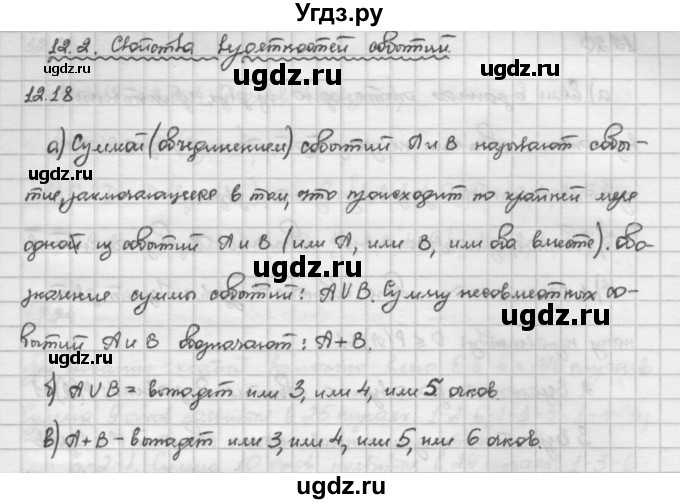 Угдз.ру
12.2. Свойства вероятностей событий.
12.18
а) Суммой (объединением) событий A и B называют собы-
тие, заключающееся в том, что происходит по крайней мере
одной из событий A и B (или A, или B, или оба вместе). Обо-
значение суммы событий: A∪B. Сумму несовместных со-
бытий A и B обозначают: A+B.
б) A∪B = выпадет или 3, или 4, или 5 очков.
в) A+B – выпадет или 3, или 4, или 5, или 6 очков.
ugdz.ru
ugdz.ru
ugdz.ru
ugdz.ru
ugdz.ru
ugdz.ru
ugdz.ru
ugdz.ru
ugdz.ru
ugdz.ru
ugdz.ru